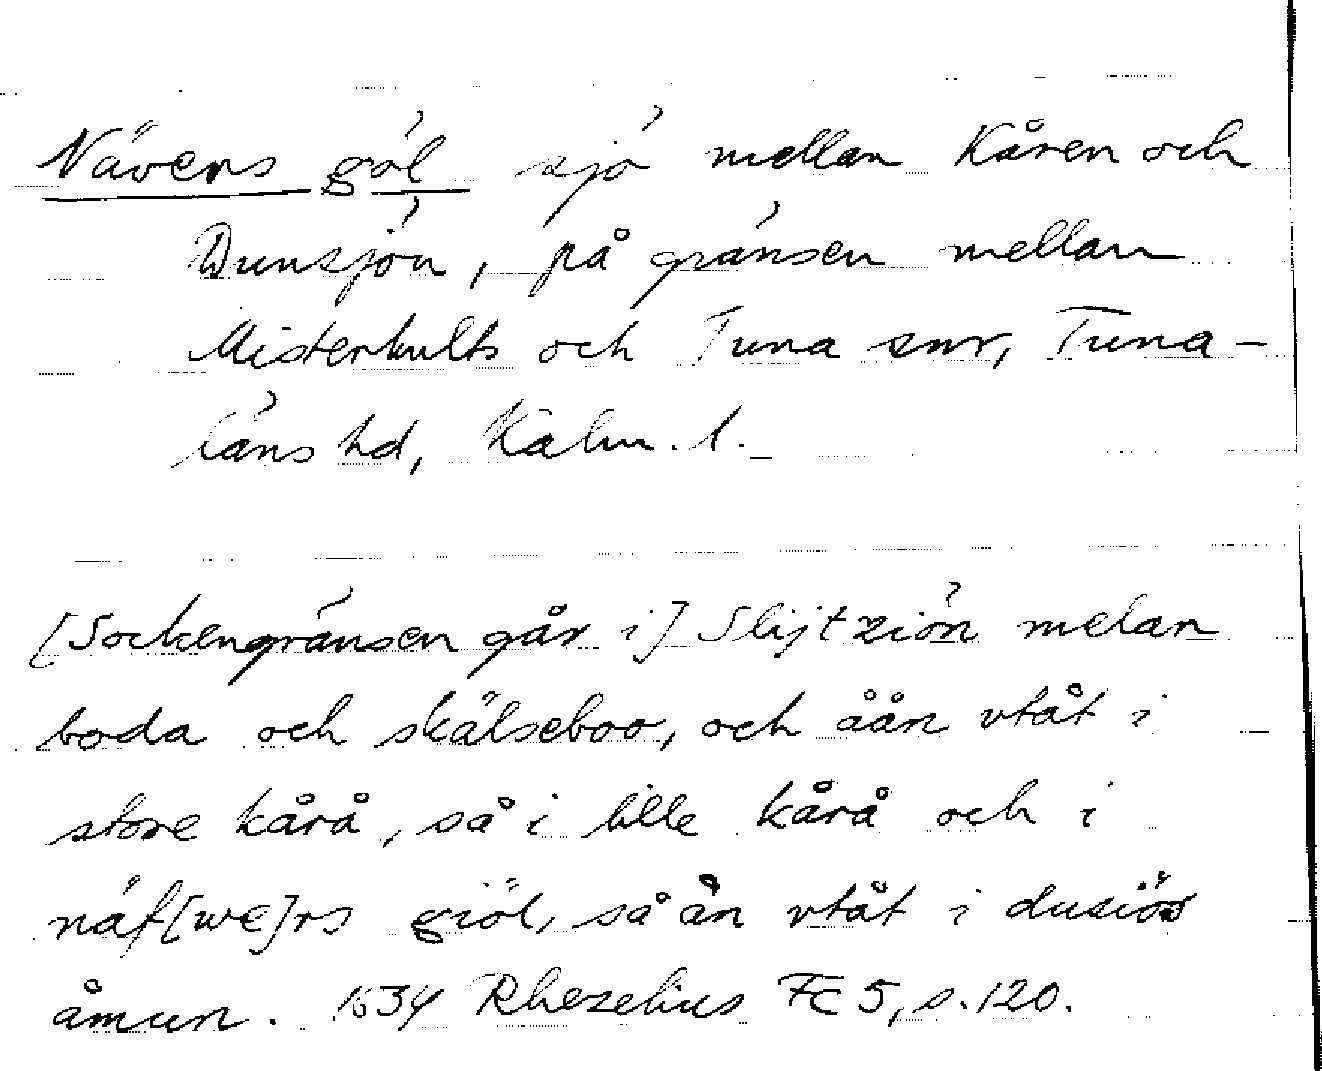 Nävers göl sjö mellan Kåren och
Dunsjön, på gränsen mellan
Misterhults och Tuna snr, Tuna-
läns hd, Kalm. l.
[Sockengränsen går i] Slijtziön melan
boda och skälseboo, och åån vtåt i
store kårå, så i lille kårå och i
näf[we]rs giöl, så ån vtåt i dusiös
åmun. 1634 Rhezelius Fc 5, s. 120.